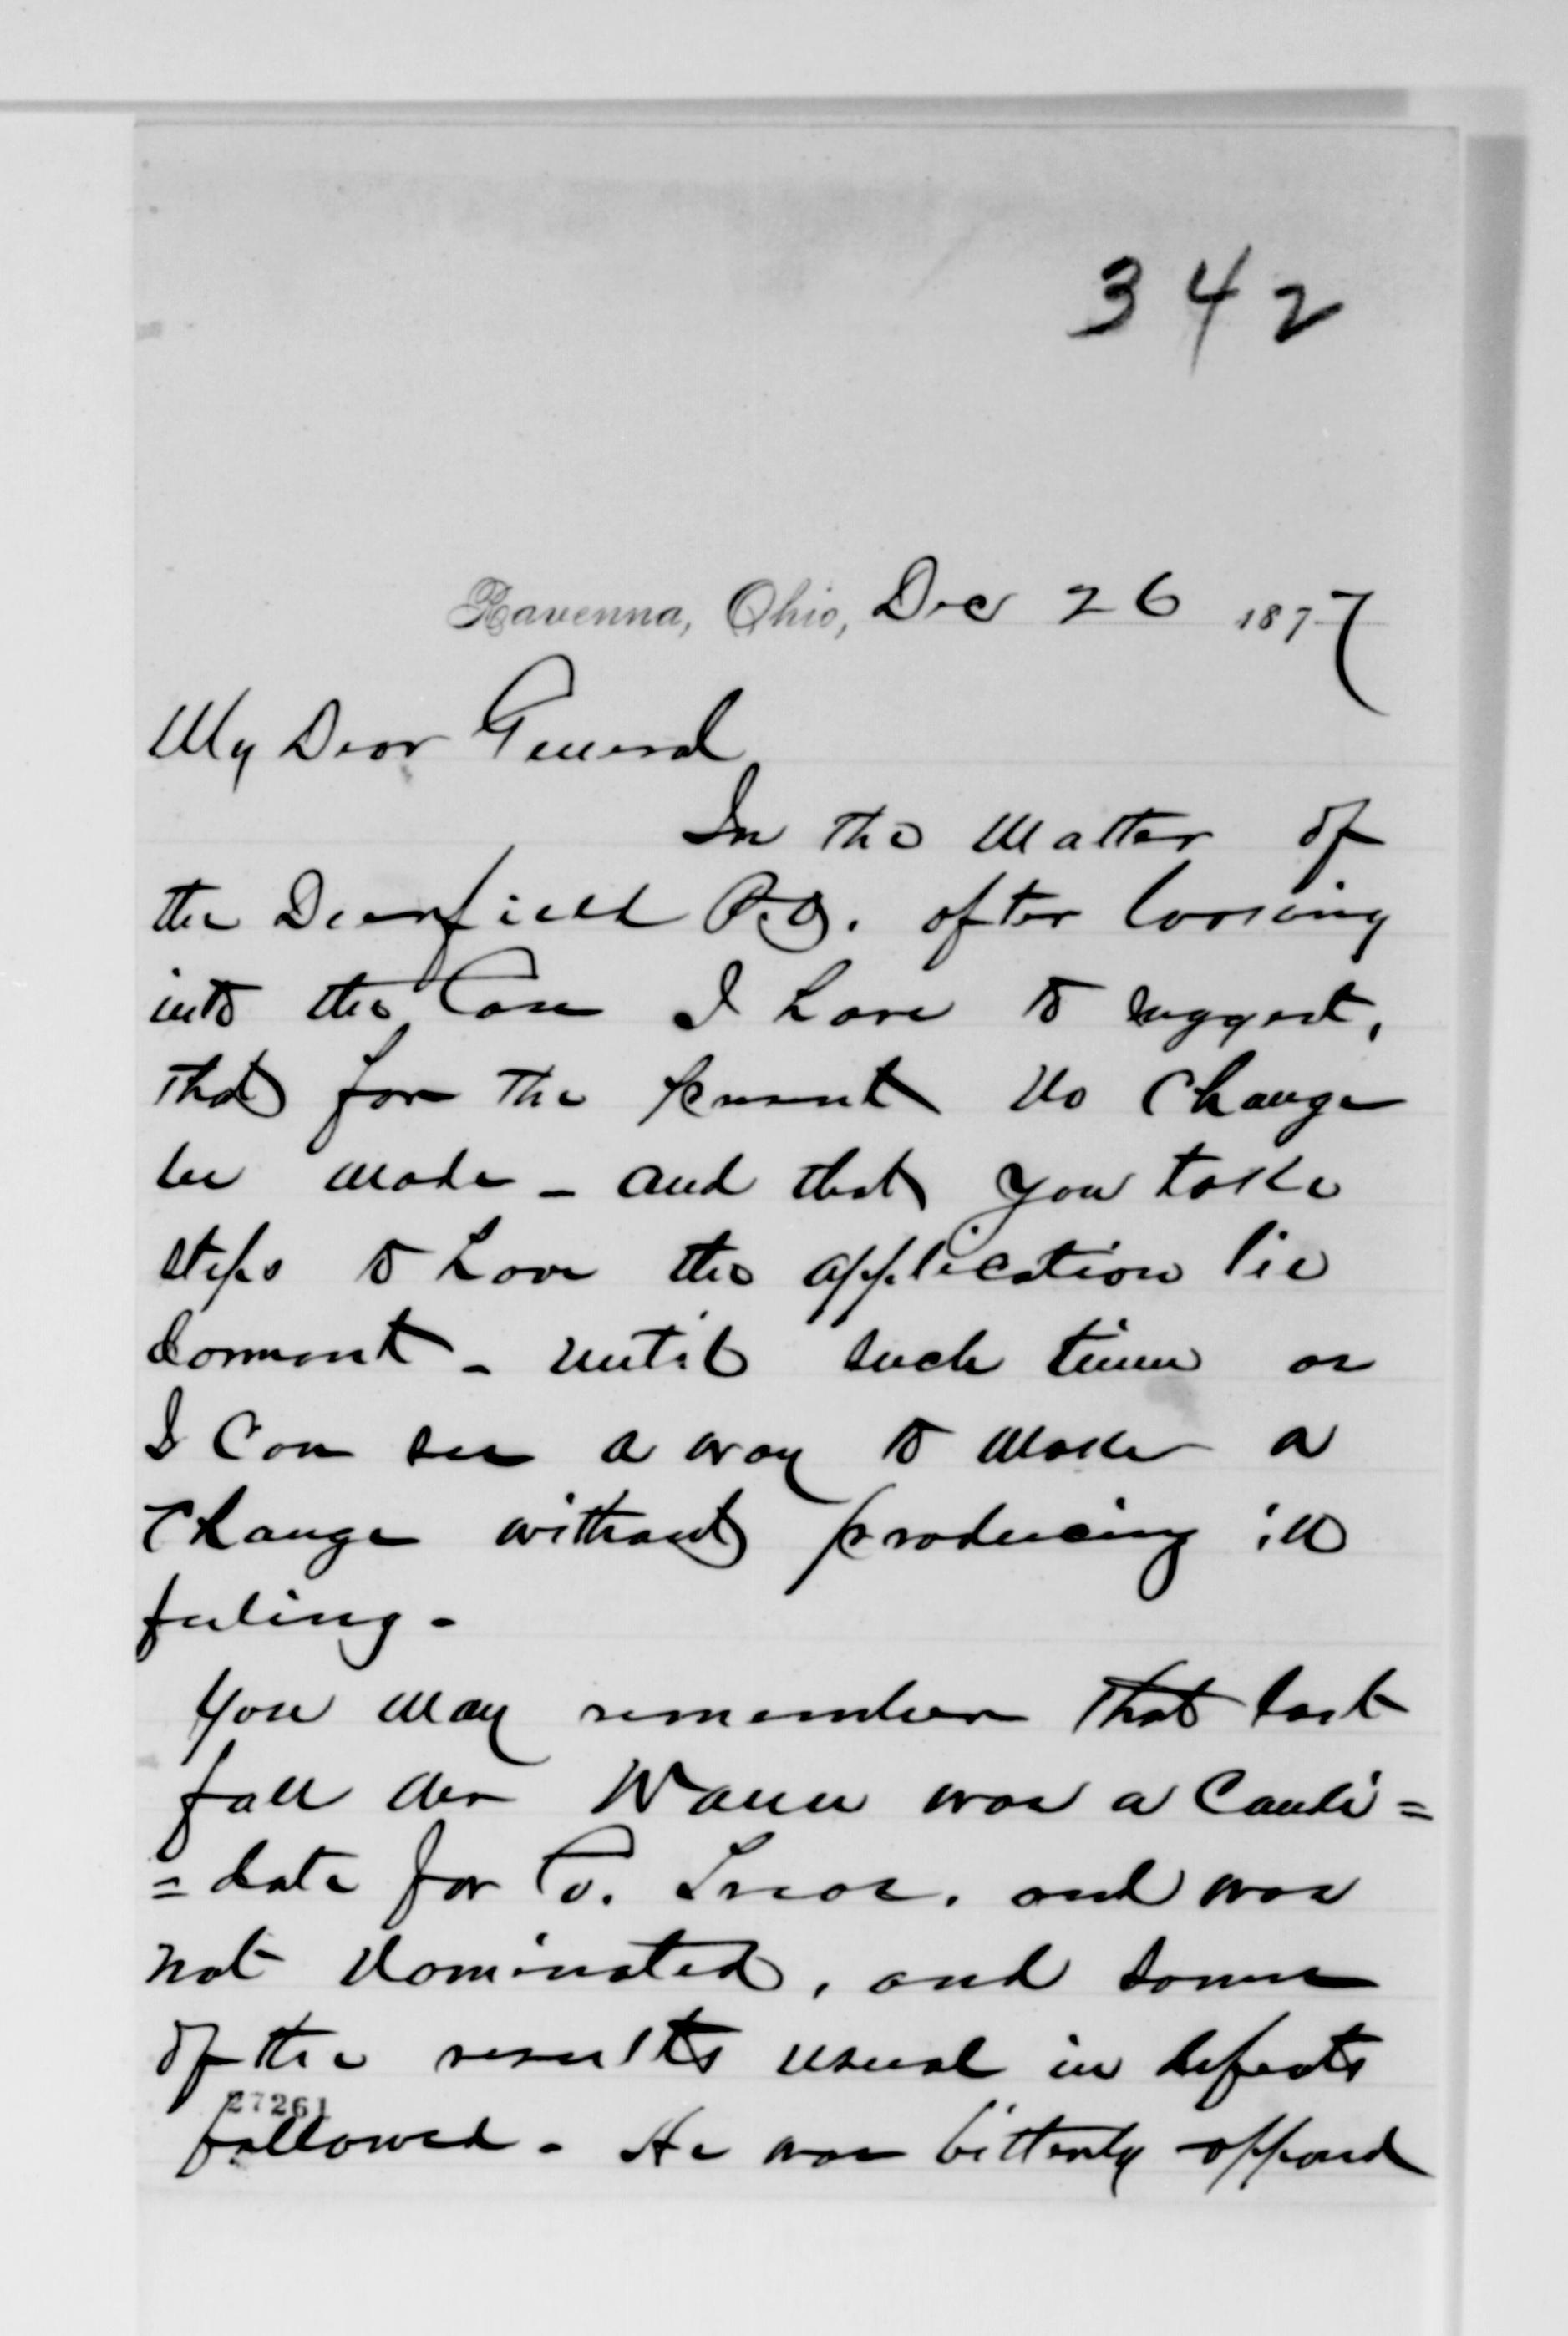 342
Ravenna, Ohio, Dec 26 1877
My Dear General
In the matter of
the Deerfield P.O. after looking
into the Case I have to suggest,
that for the present no change
be made - and that you take
steps to have the application lie
dormant - until such time as
I Can see a way to make a
change without producing ill
feeling -
You may remember that last
fall Mr Wann was a Candi=
=date for Co. Treas. and was
not nominated, and some
of the results usual in defeats
27261
followed - He was bitterly opposed